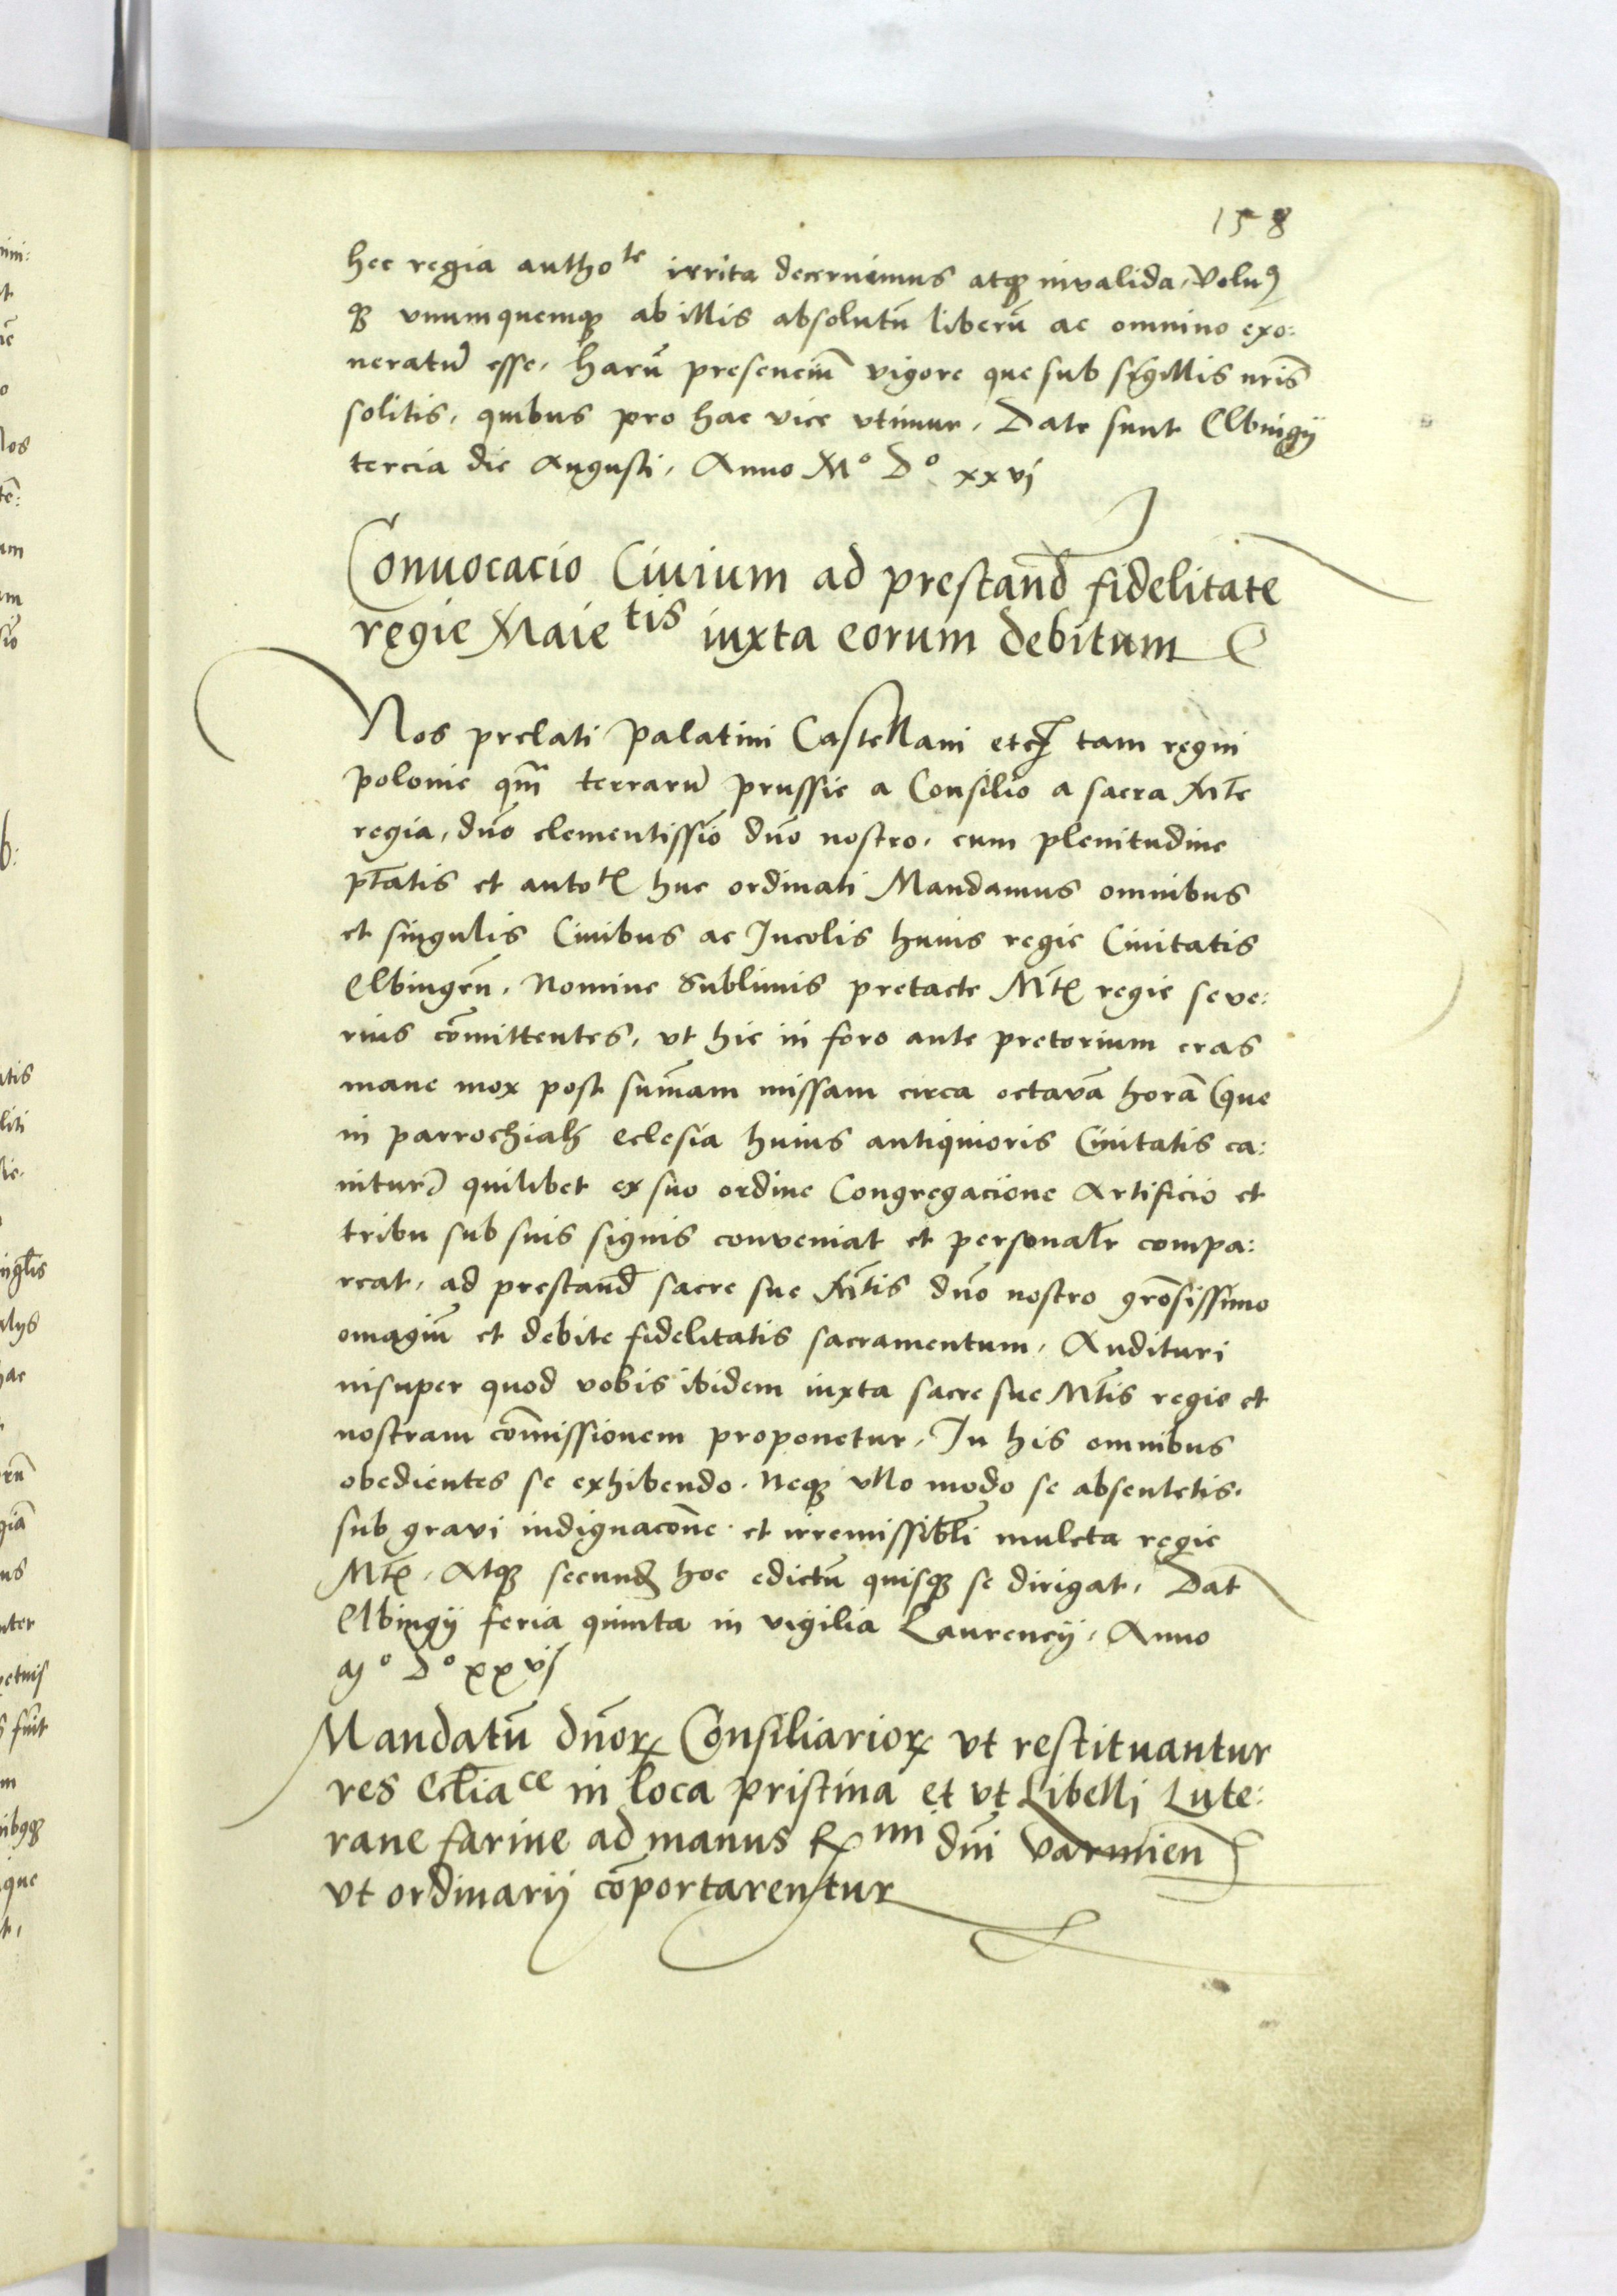 158
hec regia autho^te irrita decernimus atq; invalida, Volu9
q; vnumquemq; ab illis absolutū liberū ac omnino exo:
neratū esse, harū presenciū vigore que sub sigillis nr̄is
solitis, quibus pro hac vice vtimur, Date sunt Elbingij
tercia die Augusti, Anno M° D° xxvj
Conuocacio Ciuium ad prestand̄ fidelitate
regie Maie^tis iuxta eorum debitum
Nos prelati Palatini Castellani etc̄ tam regni
polonie qm̄ terrarū prussie a Consilio a sacra Mt̄e
regia, dn̄o clementissīo dn̄o nostro, cum plenitudine
pt̄atis et auto^te huc ordinati Mandamus omnibus
et singulis Ciuibus ac Incolis huius regie Ciuitatis
Elbingeñ, Nomine Sublimis pretacte Mt̄e regie seve:
rius com̄ittentes, vt hic in foro ante pretorium cras
mane mox post sum̄am missam circa octavā horā (que
in parrochiali eclesia huius antiquioris Ciuitatis ca:
nitur) quilibet ex suo ordine Congregacione Artificio et
tribu sub suis signis conveniat et personalr̄ compa:
reat, ad prestand̄ sacre sue Mt̄is dn̄o nostro grōsissimo
omagiū et debite fidelitatis sacramentum, Audituri
insuper quod vobis ibidem iuxta sacre sue Mt̄is regie et
nostram com̄issionem proponetur, In his omnibus
obedientes se exhibendo, Neq; vllo modo se absentetis,
sub gravi indignacōne et irremissibl̄i mulcta regie
Mt̄e, Atq; secund̄ hoc edictū quisq; se dirigat, Dat̄
Elbingij feria quinta in vigilia Laurencij, Anno
M° D° xxvj
Mandatū dn̄or̄ Consiliarior̄ vt restituantur
res Ecl̄ia^ce in loca pristina et vt Libelli Lute:
rane farine ad manus R^mi dn̄i Varmien̄
vt ordinarij cōportarentur